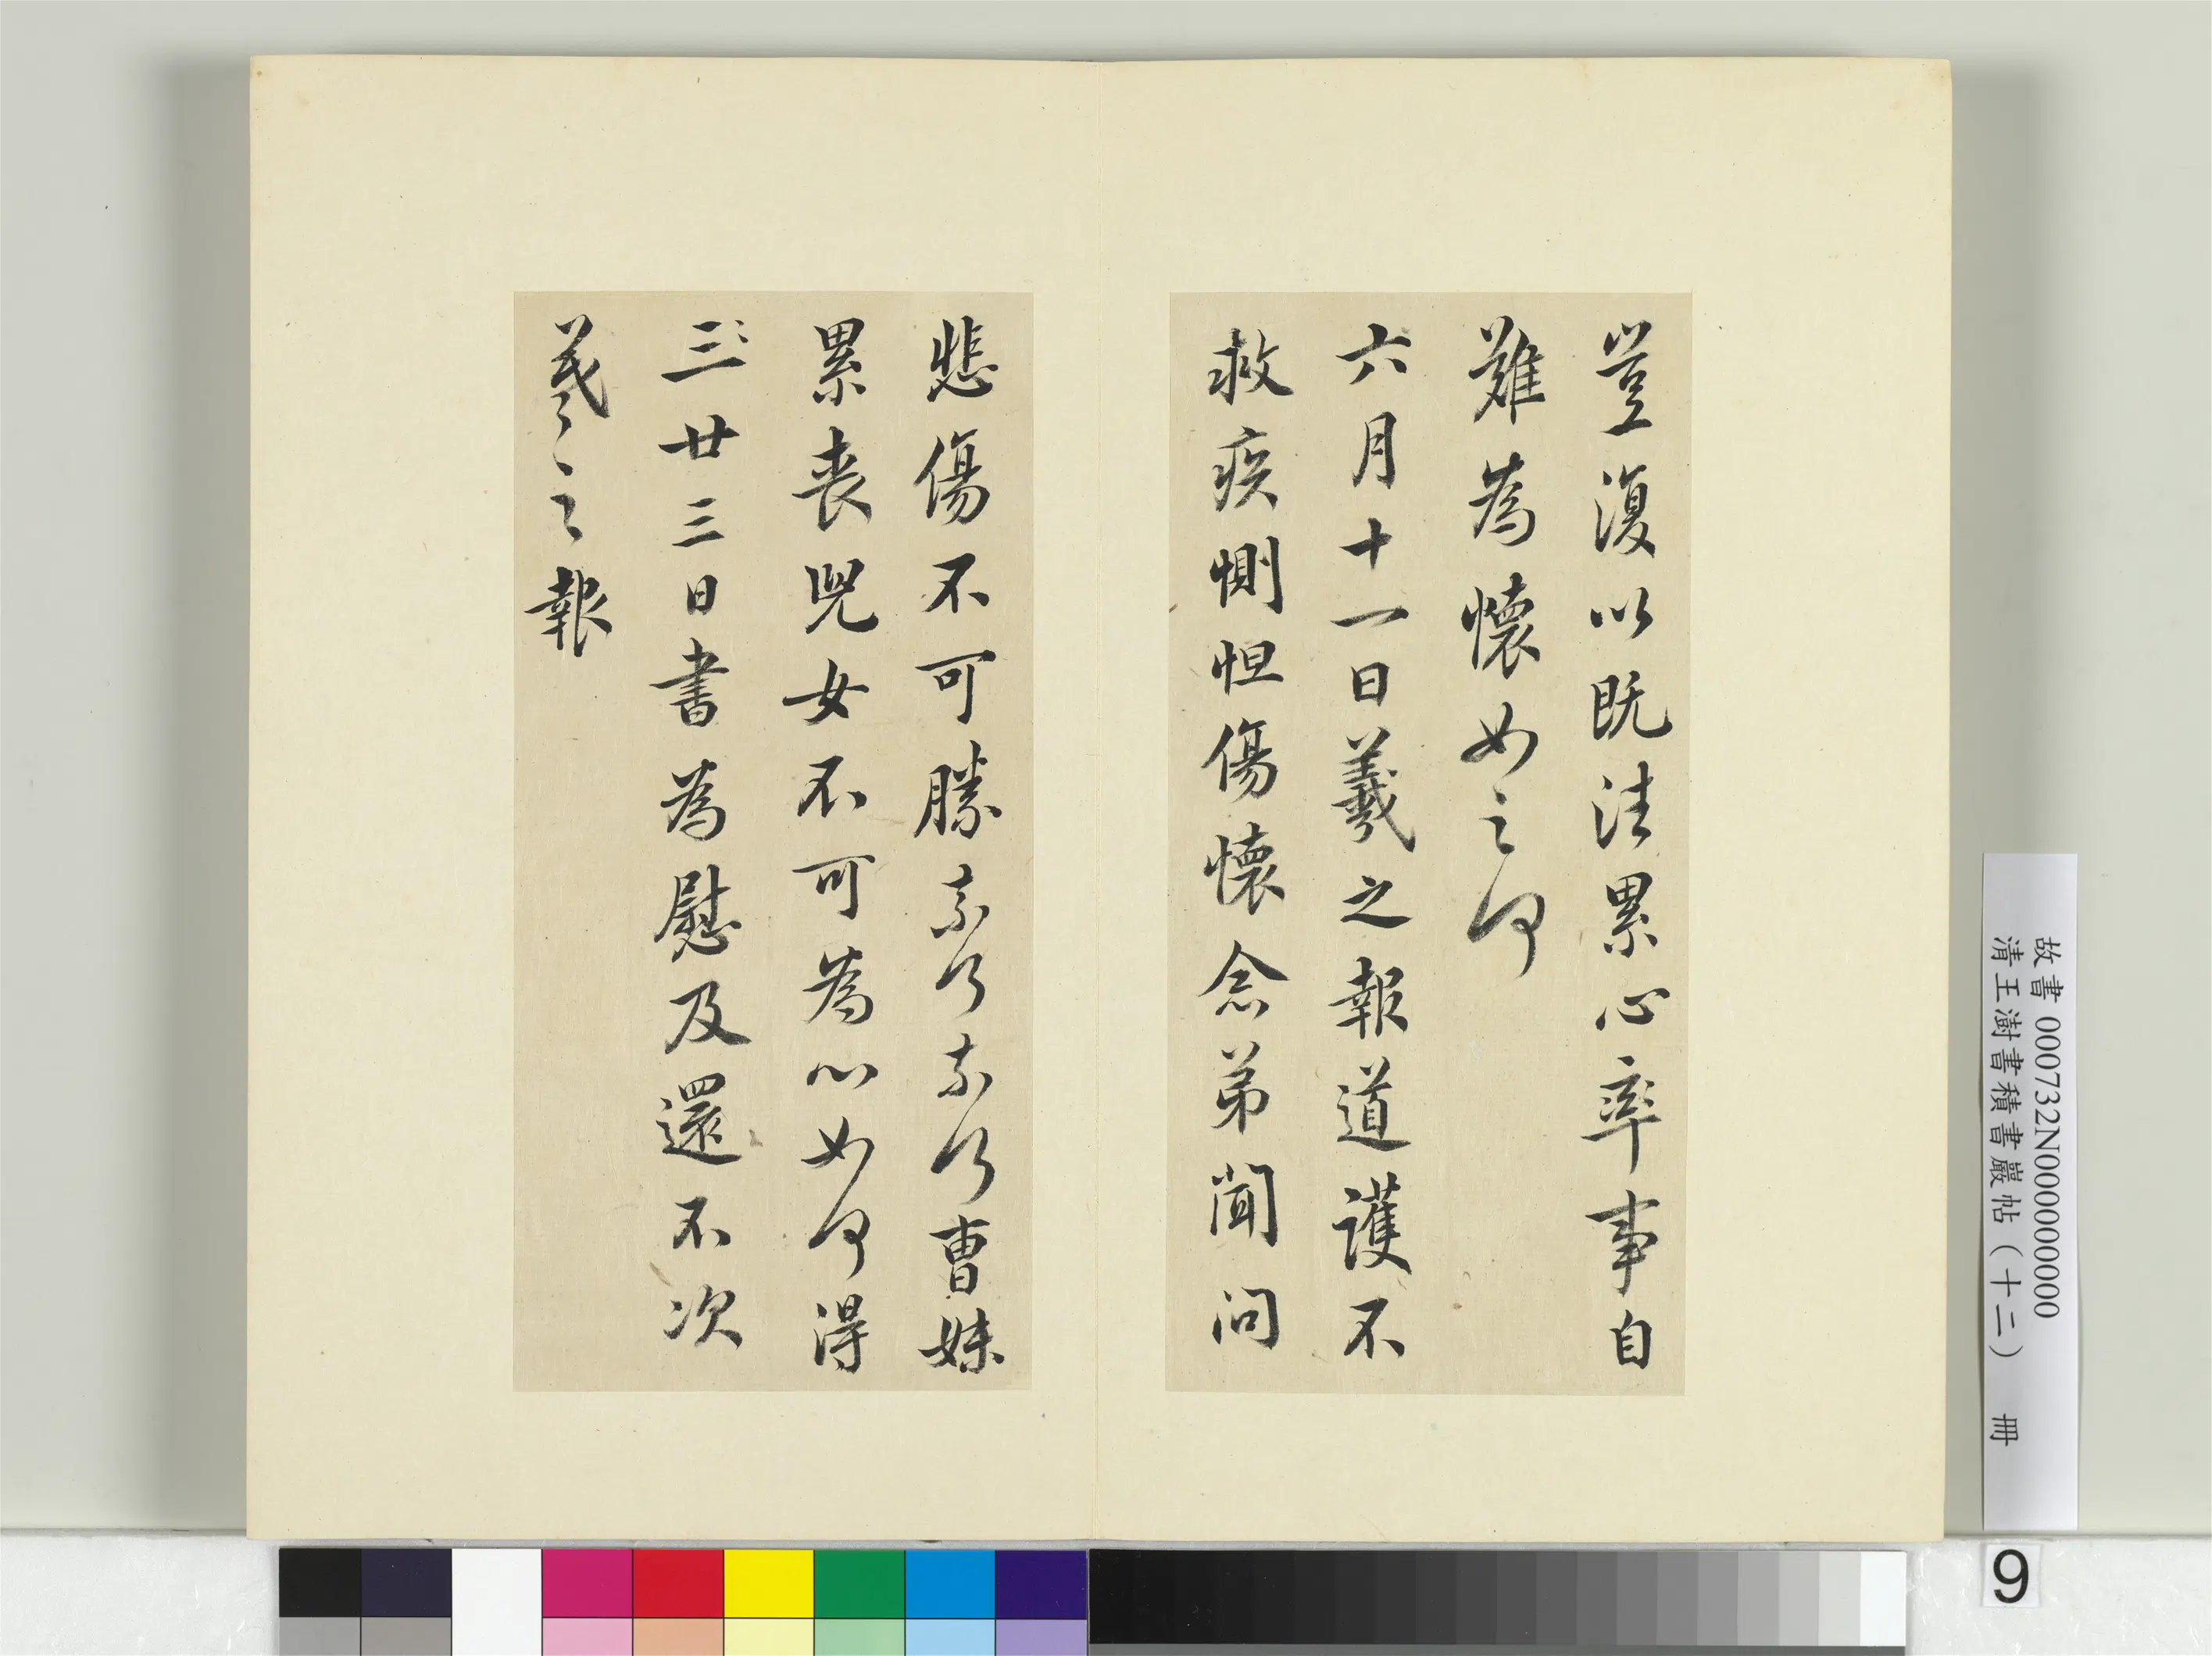 豈復以既往累心率事自
難為懷如之何
六月十一日羲之報道護不
救疾惻怛傷懷念弟聞問
悲傷不可勝奈何奈何曹妹
累喪兒女不可為心如何得
三廿三日書為慰及還不次
羲之報
故書 000732N000000000
清王澍書積書巖帖（十二） 冊
9